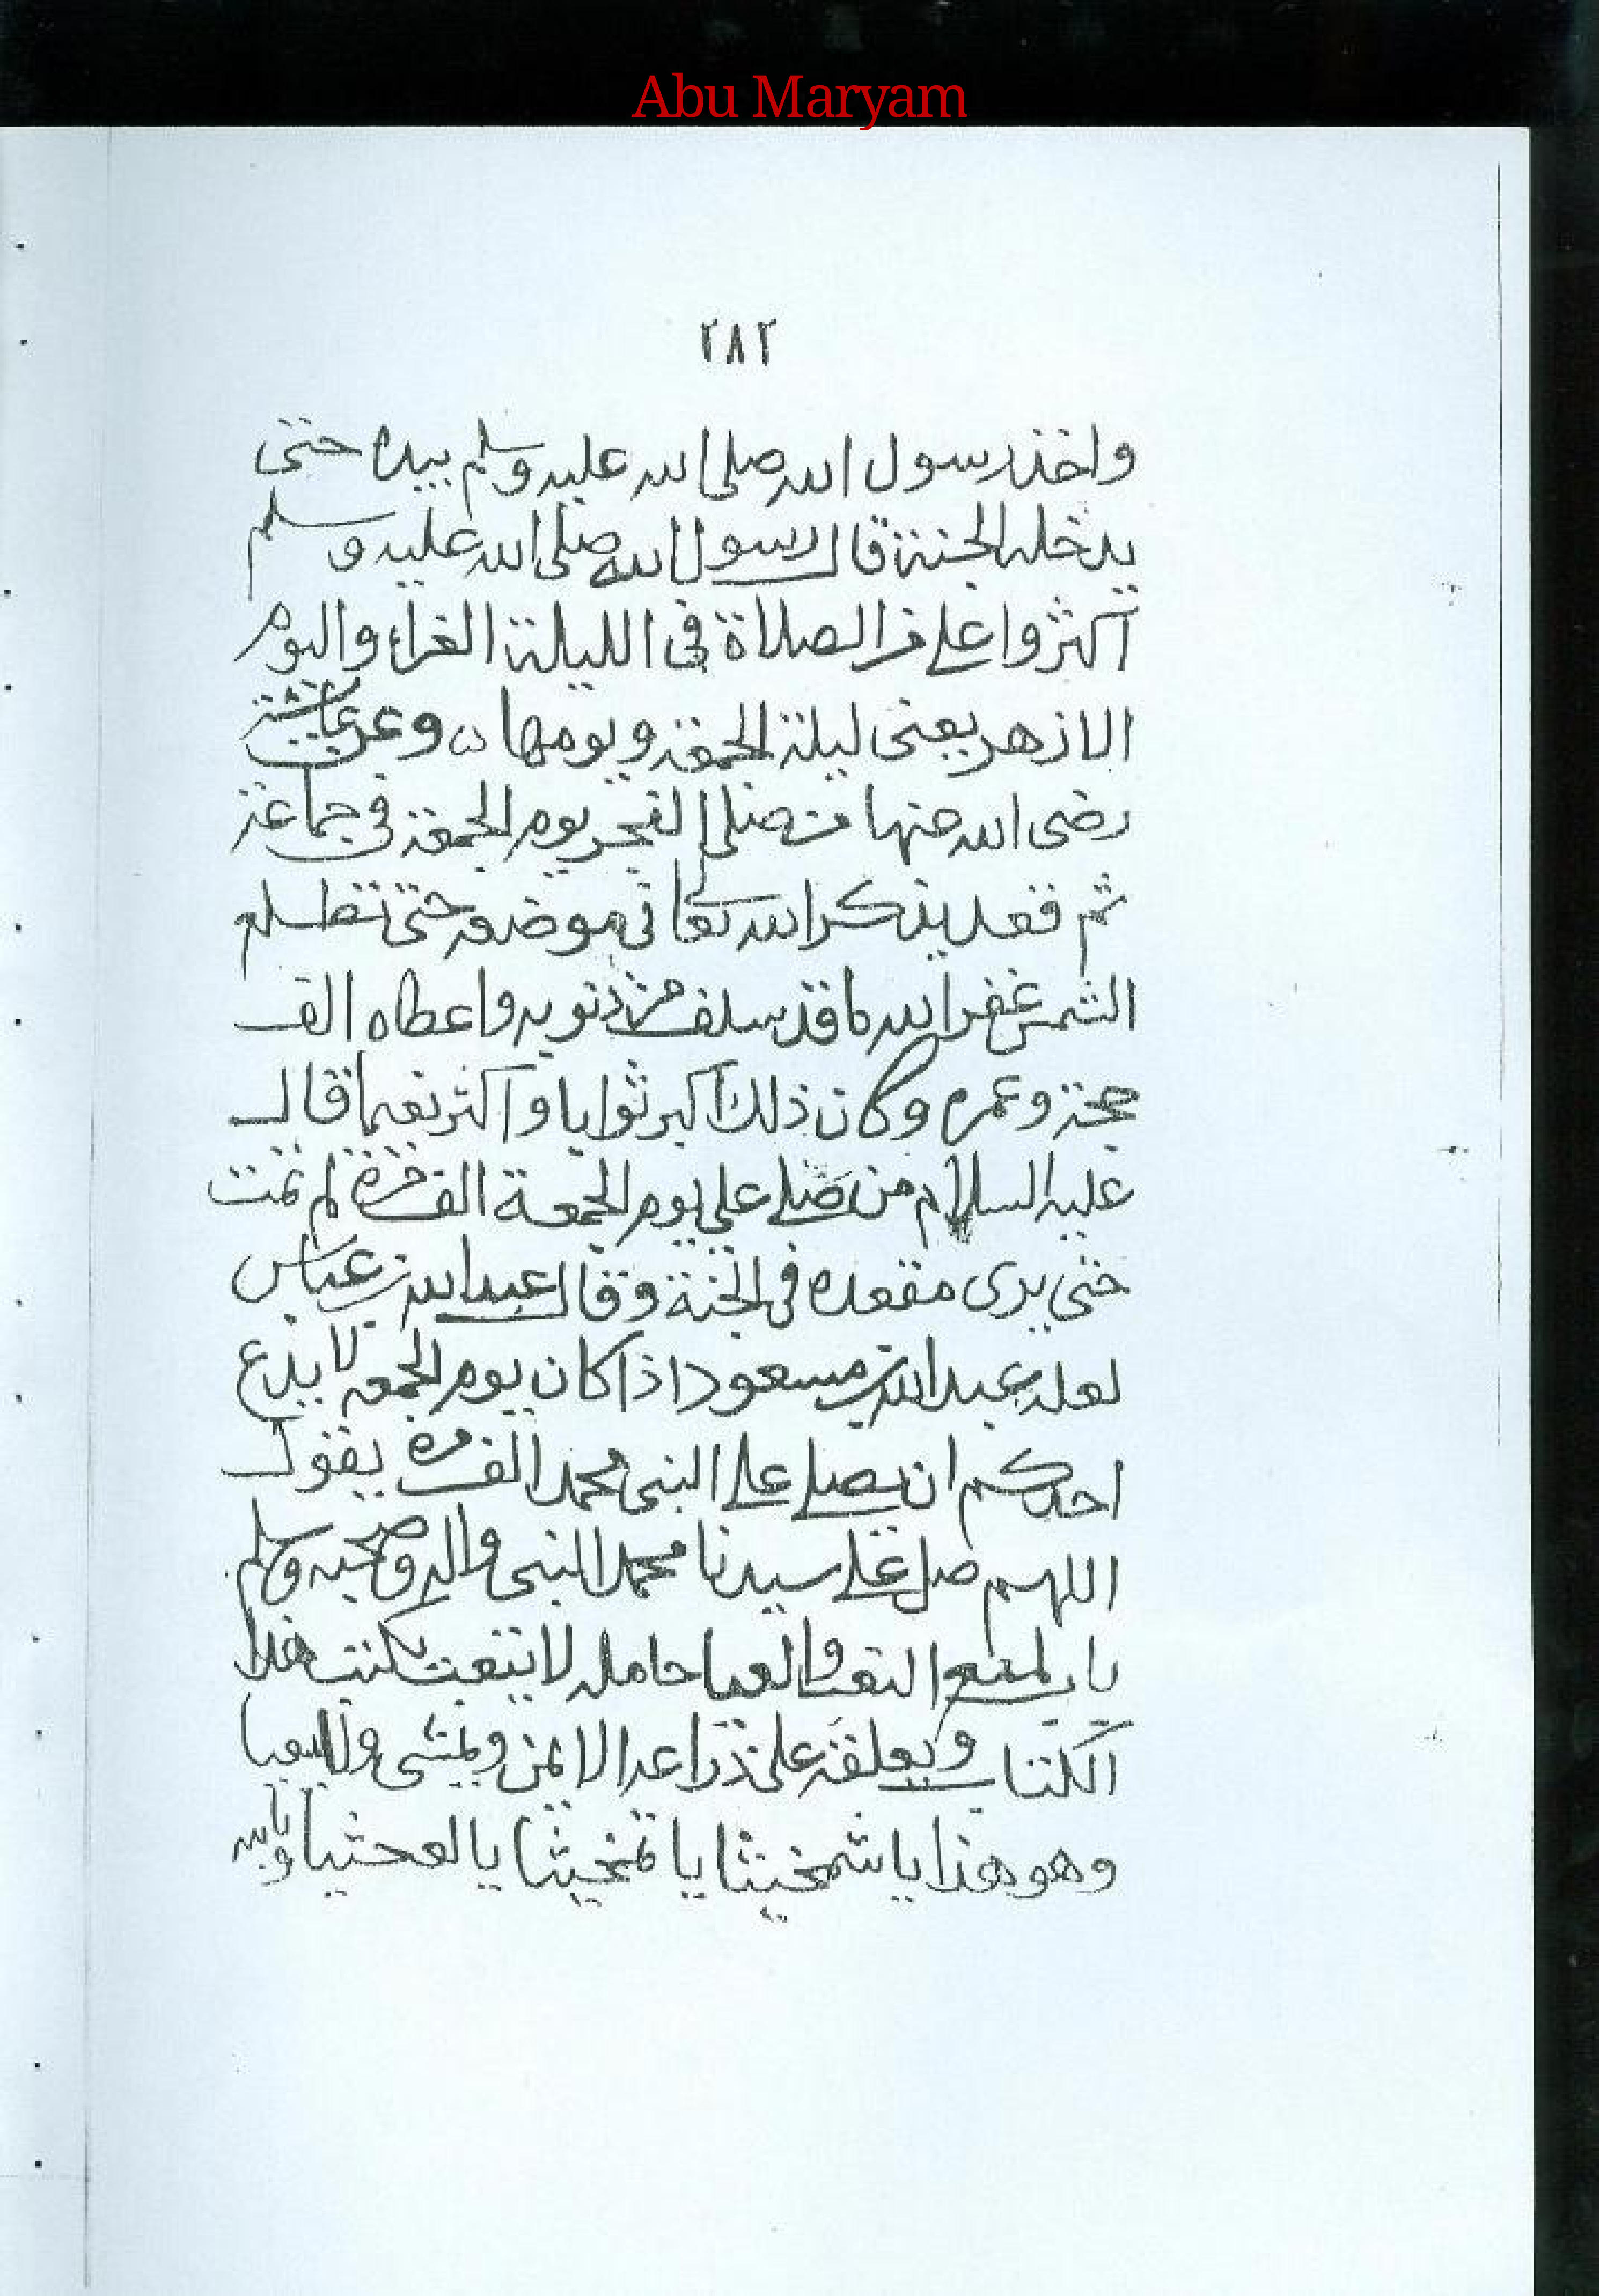 Abu Maryam
٢٨٢
واخذ رسول الله صلى الله عليه وسلم بيده حتى
يدخله الجنة قال رسول الله صلى الله عليه وسلم
اكثروا على من الصلاة في الليلة الغراء واليوم
الازهر يعنى ليلة الجمعة ويومها وعن عائشة
رضى الله عنها من صلى الفجر يوم الجمعة في جماعة
ثم قعد يذكر الله تعالى في موضعه حتى تطلع
الشمس غفر الله ما قد سلف من ذنوبه واعطاه الف
حجة وعمرة وكان ذلك اكبر ثوابا واكثر نعيما قال
عليه السلام من صلى على يوم الجمعة الف مرة لم يمت
حتى يرى مقعده في الجنة وقال عبد الله بن عباس
لعله عبد الله بن مسعود اذا كان يوم الجمعه لا يدع
احدكم ان يصلى على النبى محمد الف مرة يقول
اللهم صل على سيدنا محمد النبى واله وصحبه وسلم
باب لمنع التعب والعيا حامله لا يتعب يكتب هذا
الكتاب ويعلقه على ذراعه الايمن ويمشى ولا يعيا
وهو هذا يا شمخيثا يا